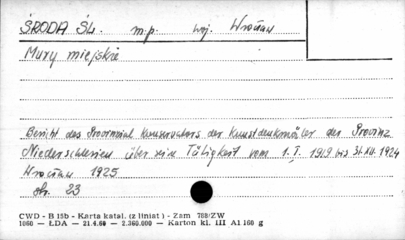 ŚRODA ŚL. m.p. woj. Wrocław
Mury miejskie
Bericht des Provinzial Konservators der Kunstdenkmäler der Provinz
Niederschlesien über sein Tätigkeit vom 1. I. 1919 bis 31. XII. 1924
Wrocław 1925
str. 23
CWD - B 15b - Karta katal. (z liniat) - Zam 788/ZW
1060 — ŁDA — 21.4.60 — 2.360.000 — Karton kl. III A1 160 g